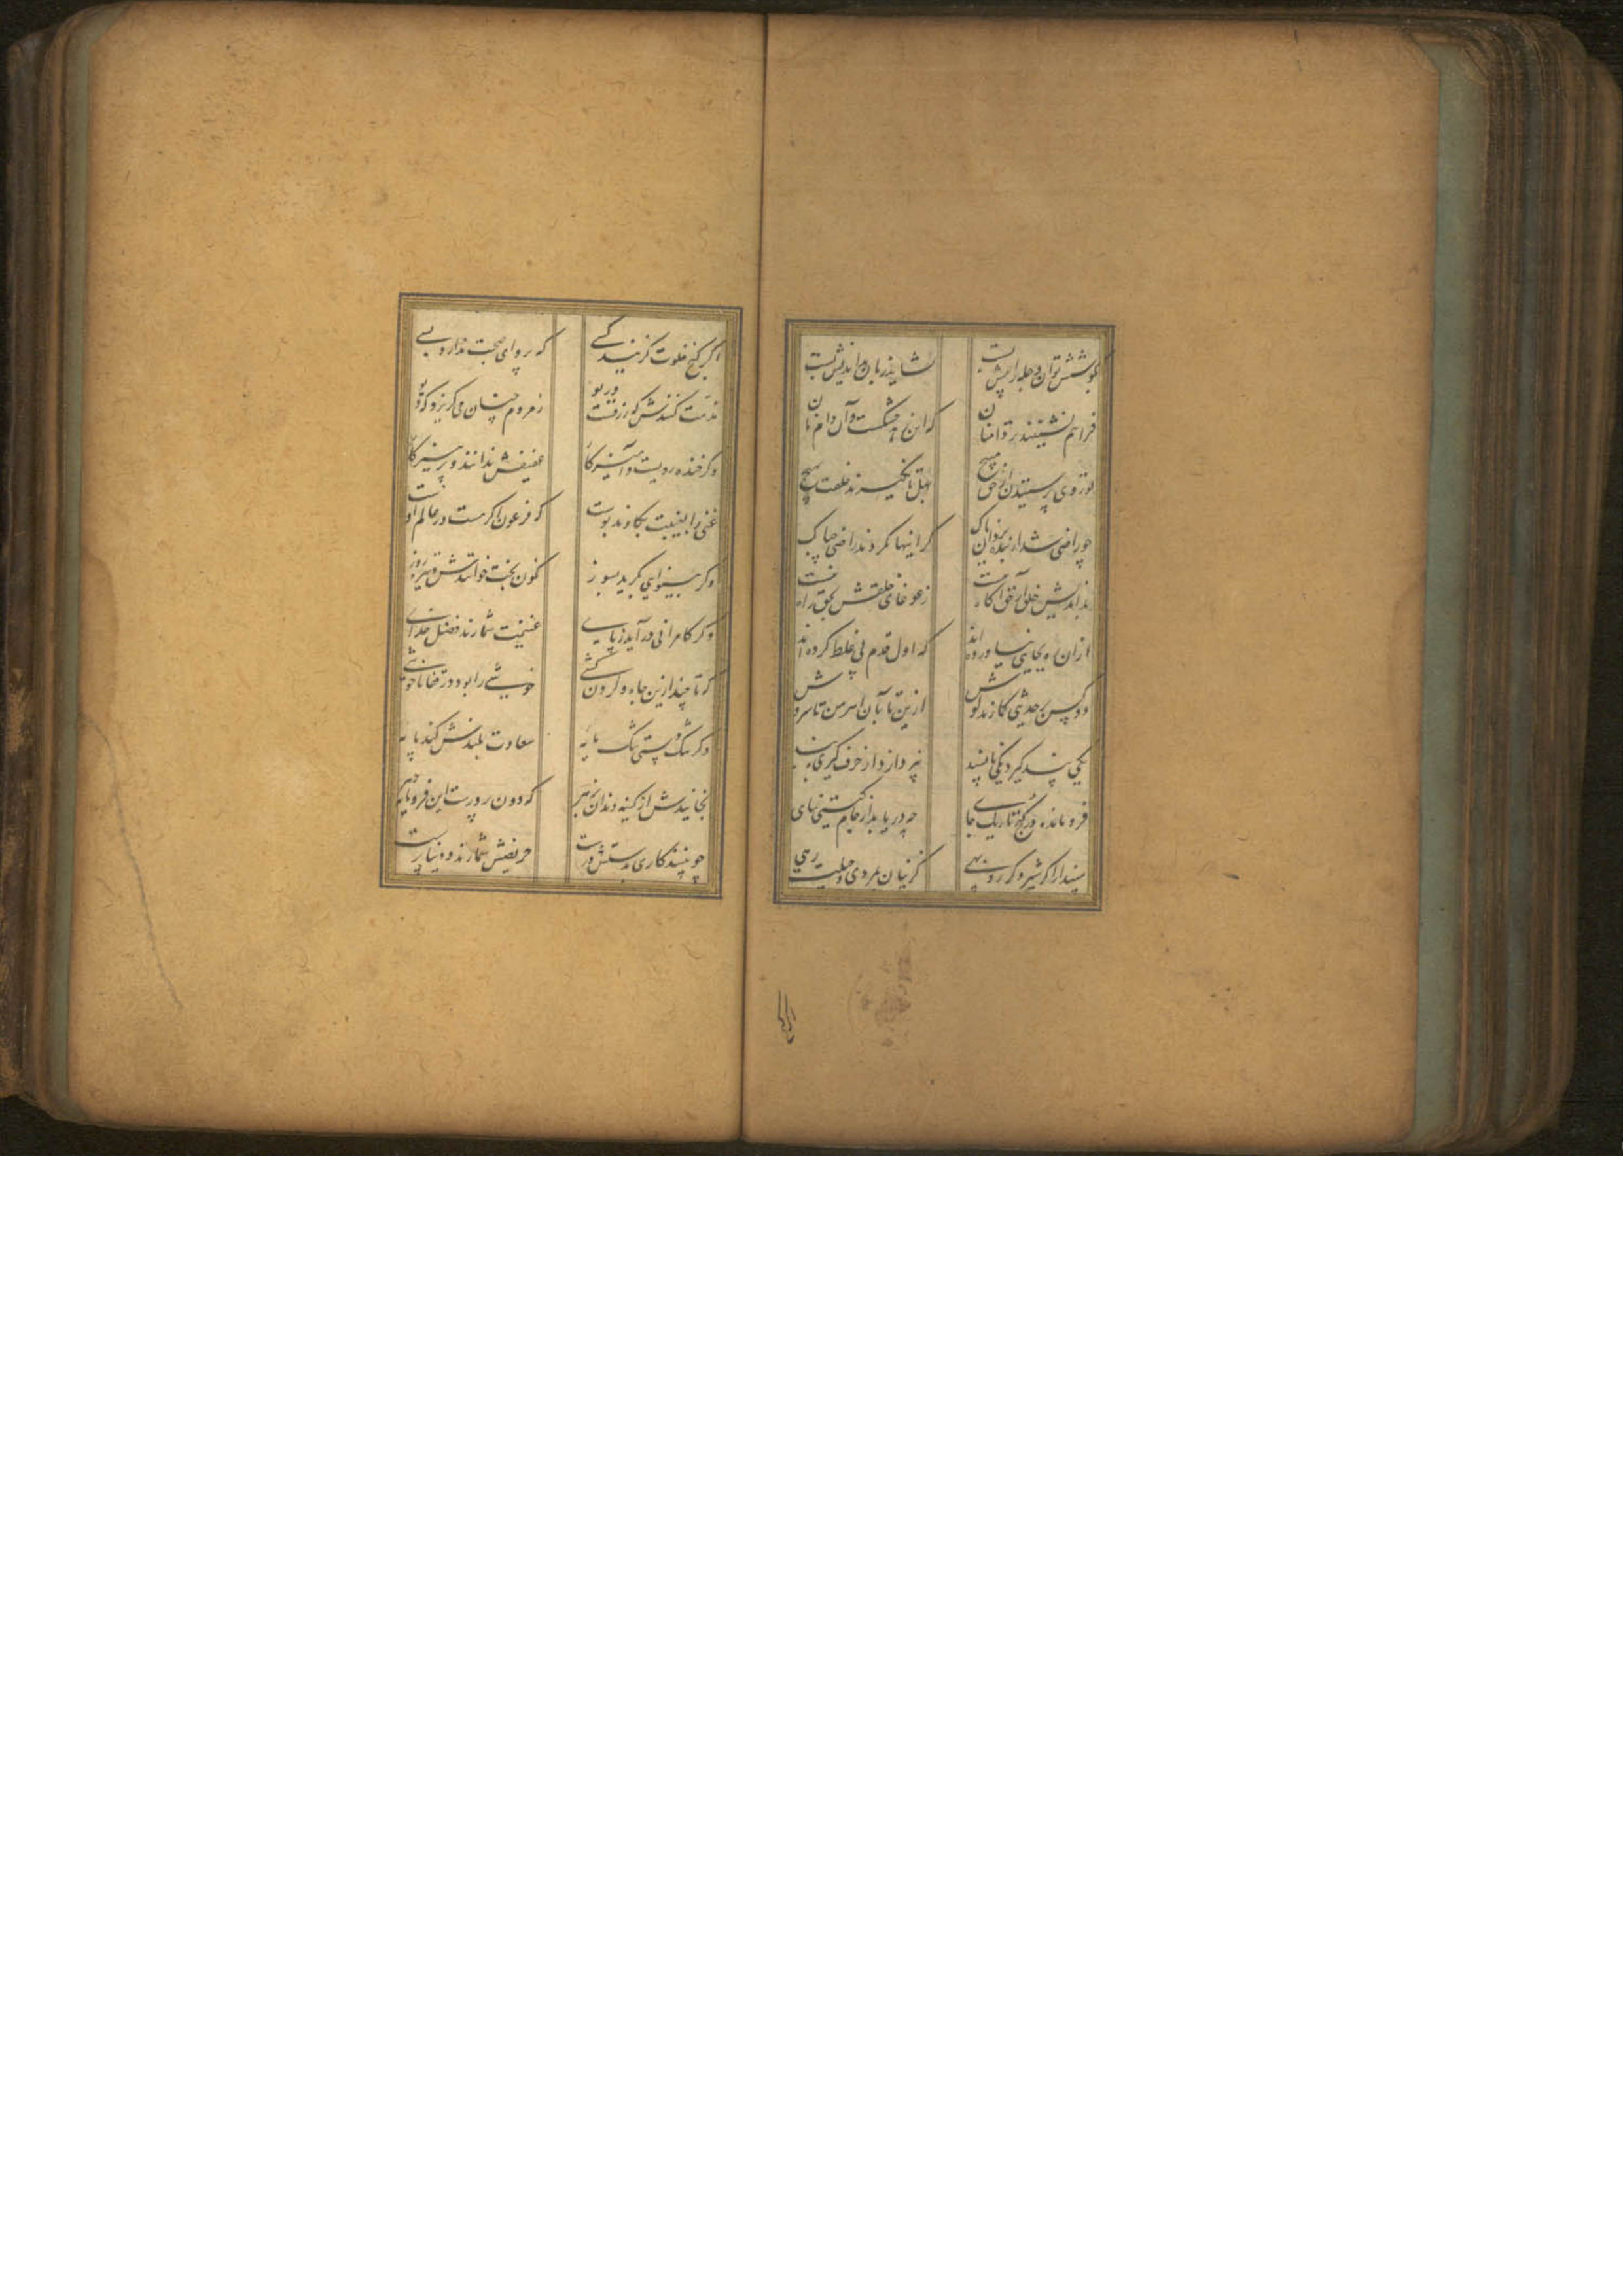 بکوشش توان دجله را پیش بست نشاید زبان بداندیش بست
فراهم نشینند تردامنان که این زهد خشکست و آن دام نان
تو روی از پرستیدن حق مپیچ بهل تا نگیرند خلقت بهیچ
چو راضی شد از بنده یزدان پاک گر اینها نگردند راضی چه باک
بداندیش خلق از حق آگاه نیست ز غوغای خلقش بحق راه نیست
از ان ره بجایی نیاورده اند که اول قدم پی غلط کرده اند
دو کس بر حدیثی گمارند گوش ازین تا بآن اهرمن تا سروش
یکی پند گیرد یکی ناپسند نپردازد از حرف گیری به پند
فرومانده در کنج تاریک جای چه دریابد از جام گیتی نمای
مپندار اگر شیر و گر روبهی کزینان بمردی و حیلت رهی
اگر کنج خلوت گزیند کسی که پروای صحبت ندارد بسی
مذمت کنندش که زرقست و ریو ز مردم چنان می گریزد که دیو
وگر خنده رویست و آمیزگار عفیفش ندانند و پرهیزگار
غنی را بغیبت بکاوند پوست که فرعون اگر هست در عالم اوست
وگر بینوایی بگرید بسوز نگون بخت خوانندش و تیره روز
وگر کامرانی در آید ز پای غنیمت شمارند فضل خدای
که تا چند ازین جاه و گردن کشی خوشی را بود در قفا ناخوشی
وگر تنگدستی تنک مایه سعادت بلندش کند پایه
بخایندش از کینه دندان بزهر که دون پرورست این فرومایه دهر
چو بینند کاری بدستش درست حریصش شمارند و دنیا پرست